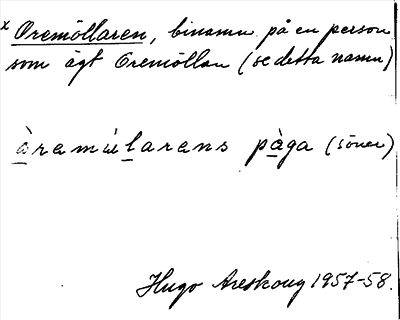 x Oremöllaren, binamn på en person
som ägt Oremöllan (se detta namn)
àremúlarens pàga (söner)
Hugo Areskoug 1957-58.